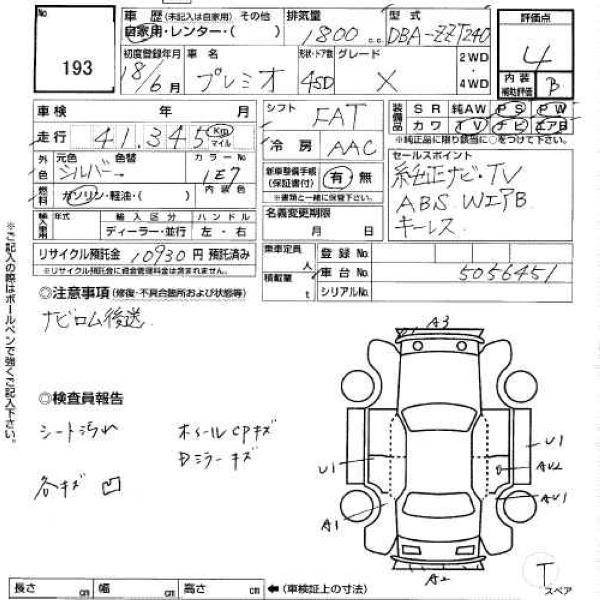 No
193
車歴(未記入は自家用) その他
自家用・レンター・( )
排気量
1800 cc
型式
DBA-ZZT240
評価点
4
内装
補助評価
B
初度登録年月
18/6月
車名
プレミオ
形状・ドア数
4SD
グレード
X
2WD
4WD
車検 年 月
走行 41.345 Km マイル
シフト FAT
冷房 AAC
装備品
SR 純AW PS PW
カワ TV ナビ エアB
※純正品に限り該当に○をつけて下さい。
外色
元色 色替
シルバー
カラーNo
1E7
燃料
ガソリン・軽油・( )
内装色
新車整備手帳
(保証書付)
有 無
※書類と一緒に保管下さい。
セールスポイント
純正ナビ・TV
ABS WエアB
キーレス
輸入車用
年式
輸入区分
ハンドル
ディーラー・並行
左・右
名義変更期限
月 日
リサイクル預託金 10930 円 預託済み
※リサイクル預託金に資金管理料金は含まれません。
乗車定員 人
積載量 t
登録No.
車台No. 5056451
シリアルNo.
◎注意事項 (修復・不具合箇所および状態等)
ナビロム後送
◎検査員報告
シート汚れ
ホイールCPキズ
Dミラーキズ
各キズ凹
A3
U1
U1
AU2
AU1
A1
A2
T
スペア
長さ cm 幅 cm 高さ cm ←(車検証上の寸法)
※ご記入の際はボールペンで強くご記入下さい。